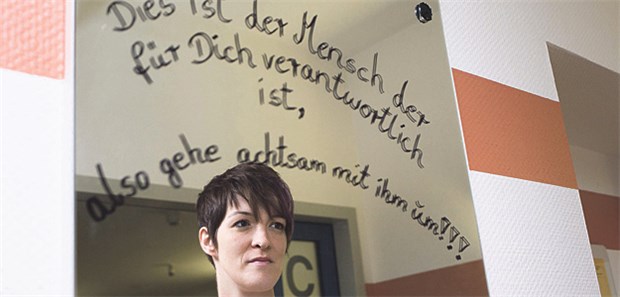 Dies ist der Mensch der
für Dich verantwortlich
ist,
also gehe achtsam mit ihm ŭm!!!
C